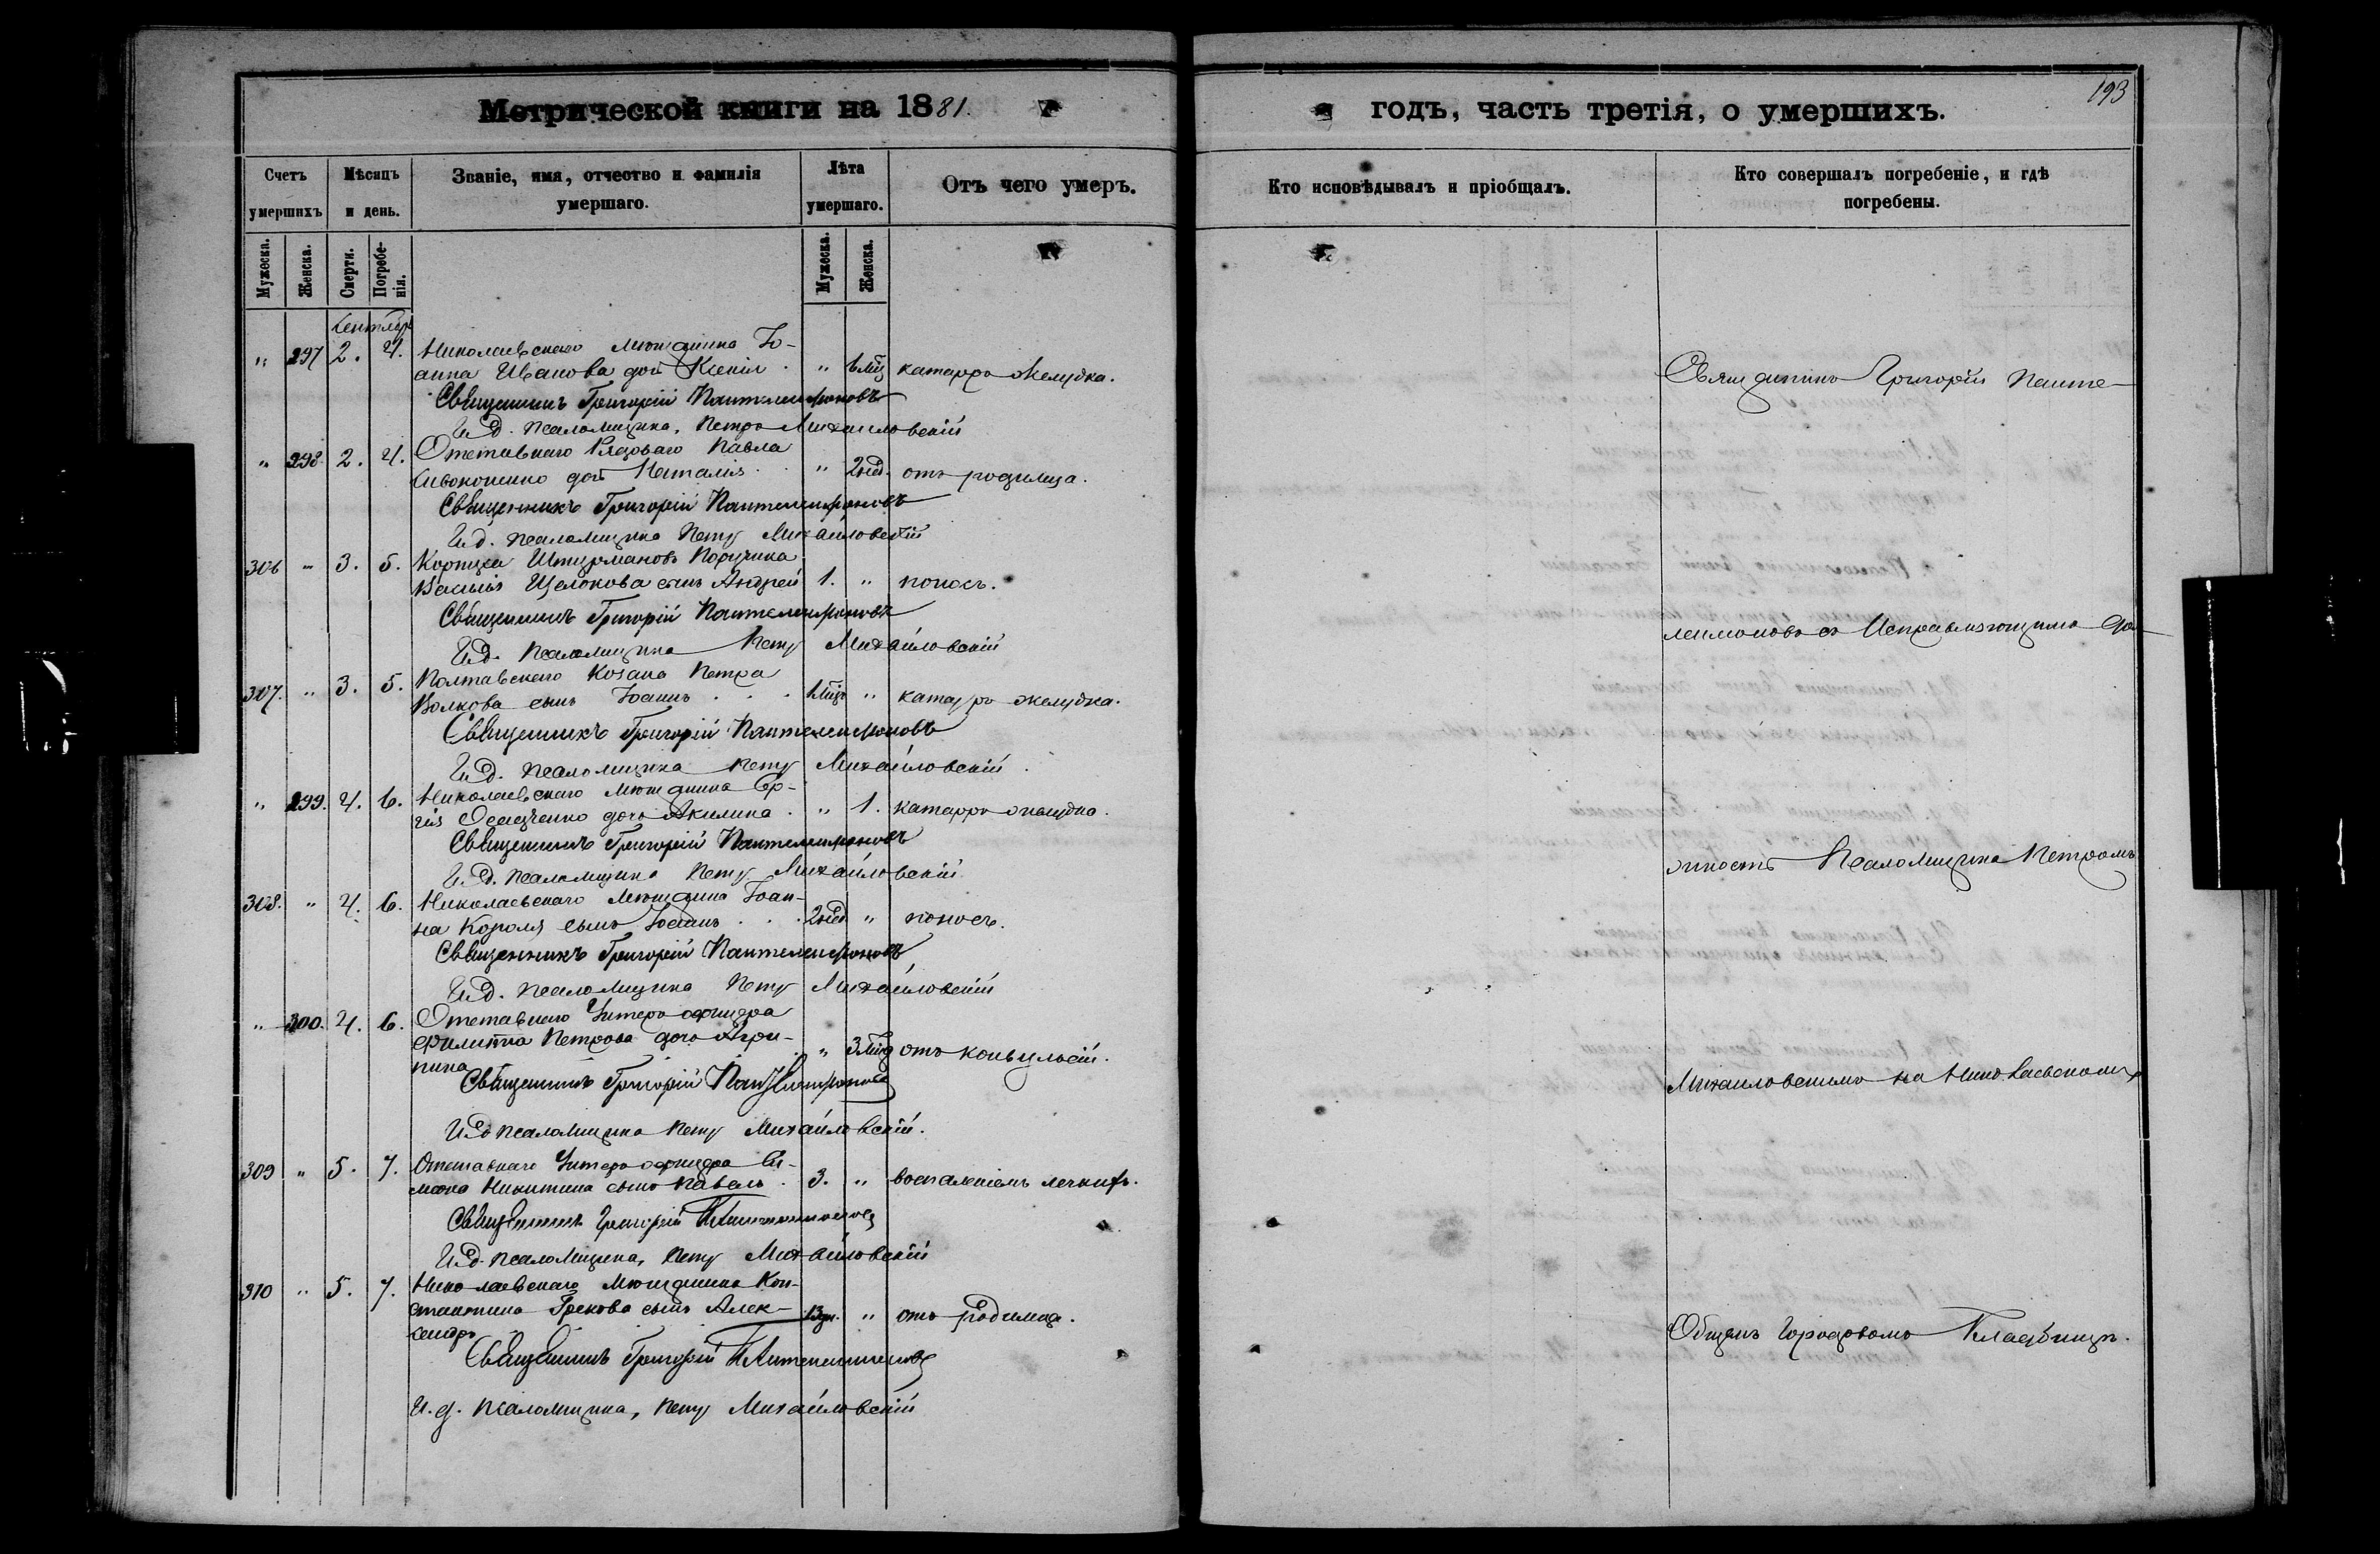 Метрической книги на 1881.
годъ, часть третія, о умершихъ.
193
Счетъ умершихъ
Мѣсяцъ и день.
Званіе, имя, отчество и фамилія умершаго.
Лѣта умершаго.
Отъ чего умеръ.
Кто исповѣдывалъ и пріобщалъ.
Кто совершалъ погребеніе, и гдѣ погребены.
Мужеска.
Женска.
Смерти.
Погребенія.
Мужеска.
Женска.
Сентябрь
" 297 2. 4. Николаевскаго мѣщанина Іо-
анна Иванова доч Ксенія . " 1 мѣц катарръ желудка.
Священникъ Григорій Пантелеимоновъ
И.д. псаломщика, Петръ Михайловскій
" 298. 2. 4. Отставнаго Рядоваго Павла
доч Наталія . . " 2 нед. отъ родимца.
Священникъ Григорій Пантелеимоновъ
И.д. псаломщика Петръ Михайловскій
306 " 3. 5. Корпуса Штурмановъ Поручика
Василія Щелокова сынъ Андрей 1. " поносъ.
Священникъ Григорій Пантелеимоновъ
И.д. псаломщика Петръ Михайловскій
307. " 3. 5. Полтавскаго Козака Петра
Волкова сынъ Іоаннъ . . . 1 мѣц " катарръ желудка.
Священникъ Григорій Пантелеимоновъ
И.д. псаломщика Петръ Михайловскій.
" 299. 4. 6. Николаевскаго мѣщанина Сер-
гія Осадченко дочь Акилина . " 1. катарръ желудка.
Священникъ Григорій Пантелеимоновъ
И.д. псаломщика Петръ Михайловскій
308. " 4. 6. Николаевскаго мѣщанина Іоан-
на Короля сынъ Іоаннъ . . . 2 нед " поносъ.
Священникъ Григорій Пантелеимоновъ
И.д. псаломщика Петръ Михайловскій
" 300. 4. 6. Отставнаго Унтеръ офицера
Филиппа Петрова дочь Агри-
пина . " 3 мѣц отъ конвульсій.
Священникъ Григорій Пантелеимоновъ
И.д. псаломщика Петръ Михайловскій.
309 " 5. 7. Отставнаго Унтеръ офицера Си-
мона Никитина сынъ Павелъ . 3. " воспаленіемъ легкихъ.
Священникъ Григорій Пантелеимоновъ
И.д. псаломщика, Петръ Михайловскій
310 " 5. 7. Николаевскаго мѣщанина Кон-
стантина Грекова сынъ Алек-
сандръ 13 дн. " отъ родимца.
Священникъ Григорій Пантелеимоновъ
И.д. псаломщика, Петръ Михайловскій
Священникъ Григорій Панте-
леимоновъ съ Исправляющимъ дол-
жность Псаломщика Петромъ
Михайловскимъ на Николаевскомъ
Общемъ Городовомъ Кладбищѣ.